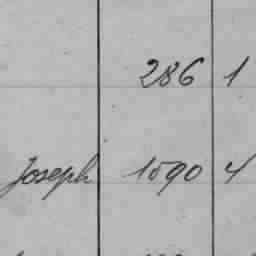 286 1
Joseph 1590 4